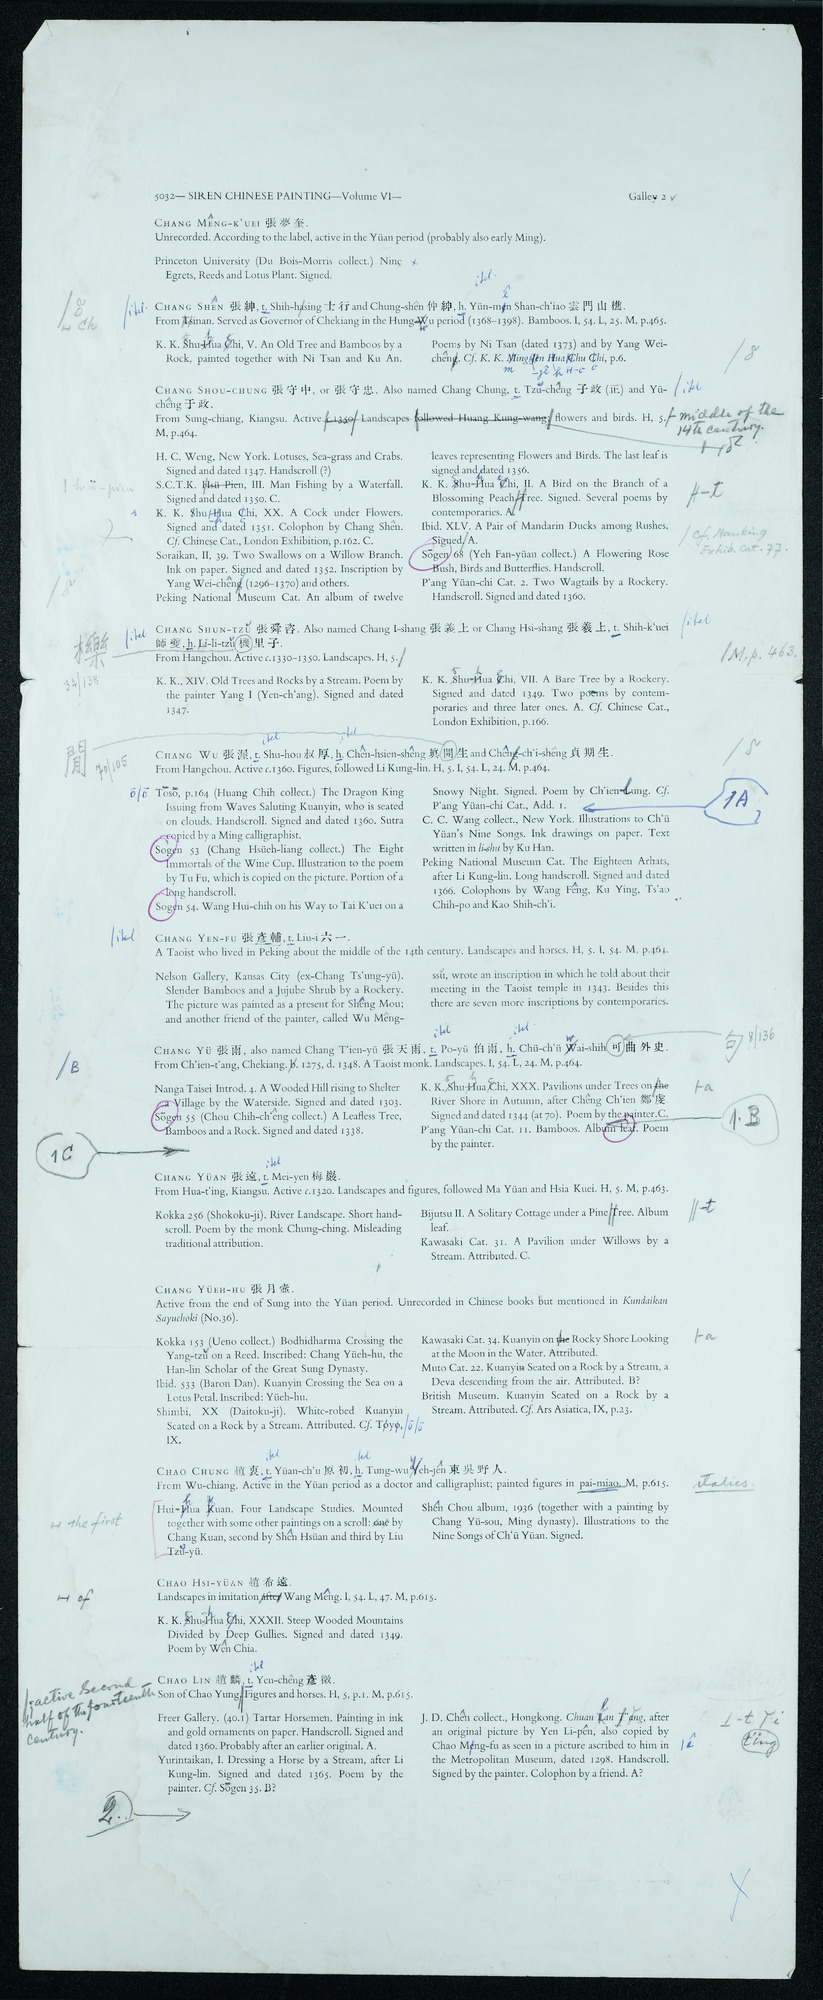 5032— SIREN CHINESE PAINTING—Volume VI— Galley 2
CHANG MÊNG-K'UEI 張夢奎.
Unrecorded. According to the label, active in the Yüan period (probably also early Ming).
Princeton University (Du Bois-Morris collect.) Nine
Egrets, Reeds and Lotus Plant. Signed.
ital
CHANG SHEN 張紳, t. Shih-hasing 士行 and Chung-shên 仲紳, h. Yün-mên Shan-ch'iao 雲門山樵.
/ital.
From Tsinan. Served as Governor of Chekiang in the Hung-Wu period (1368–1398). Bamboos. I, 54. L, 25. M, p.465.
K. K. Shu-Hua Chi, V. An Old Tree and Bamboos by a
Rock, painted together with Ni Tsan and Ku An.
Poems by Ni Tsan (dated 1373) and by Yang Wei-
chêng. Cf. K. K. Ming Jen Hua Chu Chi, p.6.
CHANG SHOU-CHUNG 張守中, or 張守忠. Also named Chang Chung, t. Tzŭ-chêng 子政 (正) and Yü-
/ital
chêng 于政.
From Sung-chiang, Kiangsu. Active c.1350. Landscapes followed Huang Kung-wang; flowers and birds. H, 5.
middle of the
14th century.
M, p.464.
H. C. Weng, New York. Lotuses, Sea-grass and Crabs.
Signed and dated 1347. Handscroll (?)
S.C.T.K. Hsü Pien, III. Man Fishing by a Waterfall.
Signed and dated 1350. C.
K. K. Shu-Hua Chi, XX. A Cock under Flowers.
Signed and dated 1351. Colophon by Chang Shên.
Cf. Chinese Cat., London Exhibition, p.162. C.
Soraikan, II, 39. Two Swallows on a Willow Branch.
Ink on paper. Signed and dated 1352. Inscription by
Yang Wei-chêng (1296–1370) and others.
Peking National Museum Cat. An album of twelve
leaves representing Flowers and Birds. The last leaf is
signed and dated 1356.
K. K. Shu-Hua Chi, II. A Bird on the Branch of a
Blossoming Peach Tree. Signed. Several poems by
contemporaries. A.
Ibid. XLV. A Pair of Mandarin Ducks among Rushes.
Signed. A.
Sōgen 68 (Yeh Fan-yüan collect.) A Flowering Rose
Bush, Birds and Butterflies. Handscroll.
P'ang Yüan-chi Cat. 2. Two Wagtails by a Rockery.
Handscroll. Signed and dated 1360.
H-t
Cf. Nanking
Exhib. Cat. 77.
CHANG SHUN-TZŬ 張舜咨. Also named Chang I-shang 張義上 or Chang Hsi-shang 張羲上, t. Shih-k'uei
/ital
/ital
師夔, h. Li-li-tzŭ 機里子.
樂
34/138
From Hangchou. Active c.1330–1350. Landscapes. H, 5.
/M, p. 463.
K. K., XIV. Old Trees and Rocks by a Stream. Poem by
the painter Yang I (Yen-ch'ang). Signed and dated
1347.
K. K. Shu-Hua Chi, VII. A Bare Tree by a Rockery.
Signed and dated 1349. Two poems by contem-
poraries and three later ones. A. Cf. Chinese Cat.,
London Exhibition, p.166.
ital ital
CHANG WU 張渥, t. Shu-hou 叔厚, h. Chên-hsien-shêng 眞閒生 and Chêng-ch'i-shêng 貞期生.
From Hangchou. Active c.1360. Figures, followed Li Kung-lin. H, 5. I, 54. L, 24. M, p.464.
Tōsō, p.164 (Huang Chih collect.) The Dragon King
Issuing from Waves Saluting Kuanyin, who is seated
on clouds. Handscroll. Signed and dated 1360. Sutra
copied by a Ming calligraphist.
Sōgen 53 (Chang Hsüeh-liang collect.) The Eight
Immortals of the Wine Cup. Illustration to the poem
by Tu Fu, which is copied on the picture. Portion of a
long handscroll.
Sōgen 54. Wang Hui-chih on his Way to Tai K'uei on a
Snowy Night. Signed. Poem by Ch'ien-lung. Cf.
P'ang Yüan-chi Cat., Add. 1.
1A
C. C. Wang collect., New York. Illustrations to Ch'ü
Yüan's Nine Songs. Ink drawings on paper. Text
written in li-shu by Ku Han.
Peking National Museum Cat. The Eighteen Arhats,
after Li Kung-lin. Long handscroll. Signed and dated
1366. Colophons by Wang Fêng, Ku Ying, Ts'ao
Chih-po and Kao Shih-ch'i.
/ital
CHANG YEN-FU 張彥輔, t. Liu-i 六一.
A Taoist who lived in Peking about the middle of the 14th century. Landscapes and horses. H, 5. I, 54. M, p.464.
Nelson Gallery, Kansas City (ex-Chang Ts'ung-yü).
Slender Bamboos and a Jujube Shrub by a Rockery.
The picture was painted as a present for Shêng Mou;
and another friend of the painter, called Wu Mêng-
ssŭ, wrote an inscription in which he told about their
meeting in the Taoist temple in 1343. Besides this
there are seven more inscriptions by contemporaries.
ital ital
CHANG YÜ 張雨, also named Chang T'ien-yü 張天雨, t. Po-yü 伯雨, h. Chü-ch'ü Wai-shih 可曲外史.
句 8/136
From Ch'ien-t'ang, Chekiang. b. 1275, d. 1348. A Taoist monk. Landscapes. I, 54. L, 24. M, p.464.
/B
Nanga Taisei Introd. 4. A Wooded Hill rising to Shelter
a Village by the Waterside. Signed and dated 1303.
Sōgen 55 (Chou Chih-ch'êng collect.) A Leafless Tree,
Bamboos and a Rock. Signed and dated 1338.
K. K. Shu-Hua Chi, XXX. Pavilions under Trees on the
River Shore in Autumn, after Chêng Ch'ien 鄭虔
Signed and dated 1344 (at 70). Poem by the painter. C.
P'ang Yüan-chi Cat. 11. Bamboos. Album leaf. Poem
by the painter.
1.B
1C
ital
CHANG YÜAN 張遠, t. Mei-yen 梅巖.
From Hua-t'ing, Kiangsu. Active c.1320. Landscapes and figures, followed Ma Yüan and Hsia Kuei. H, 5. M, p.463.
Kokka 256 (Shokoku-ji). River Landscape. Short hand-
scroll. Poem by the monk Chung-ching. Misleading
traditional attribution.
Bijutsu II. A Solitary Cottage under a Pine Tree. Album
leaf.
Kawasaki Cat. 31. A Pavilion under Willows by a
Stream. Attributed. C.
CHANG YÜEH-HU 張月壺.
Active from the end of Sung into the Yüan period. Unrecorded in Chinese books but mentioned in Kundaikan
Sayuchoki (No.36).
Kokka 153 (Ueno collect.) Bodhidharma Crossing the
Yang-tzŭ on a Reed. Inscribed: Chang Yüeh-hu, the
Han-lin Scholar of the Great Sung Dynasty.
Ibid. 533 (Baron Dan). Kuanyin Crossing the Sea on a
Lotus Petal. Inscribed: Yüeh-hu.
Shimbi, XX (Daitoku-ji). White-robed Kuanyin
Seated on a Rock by a Stream. Attributed. Cf. Toyo,
IX.
Kawasaki Cat. 34. Kuanyin on the Rocky Shore Looking
at the Moon in the Water. Attributed.
Muto Cat. 22. Kuanyin Seated on a Rock by a Stream, a
Deva descending from the air. Attributed. B?
British Museum. Kuanyin Seated on a Rock by a
Stream. Attributed. Cf. Ars Asiatica, IX, p.23.
ital ital
CHAO CHUNG 趙衷, t. Yüan-ch'u 原初, h. Tung-wu Yeh-jên 東吳野人.
From Wu-chiang. Active in the Yüan period as a doctor and calligraphist; painted figures in pai-miao. M, p.615.
italics.
Hui-Hua Kuan. Four Landscape Studies. Mounted
together with some other paintings on a scroll: one by
the first
Chang Kuan, second by Shên Hsüan and third by Liu
Tzŭ-yü.
Shên Chou album, 1936 (together with a painting by
Chang Yü-sou, Ming dynasty). Illustrations to the
Nine Songs of Ch'ü Yüan. Signed.
CHAO HSI-YÜAN 趙希遠.
Landscapes in imitation after Wang Mêng. I, 54. L, 47. M, p.615.
of
K. K. Shu-Hua Chi, XXXII. Steep Wooded Mountains
Divided by Deep Gullies. Signed and dated 1349.
Poem by Wên Chia.
ital
CHAO LIN 趙麟, t. Yen-chêng 彥徵.
Son of Chao Yung. Figures and horses. H, 5, p.1. M, p.615.
active Second
half of the fourteenth
century.
Freer Gallery. (40.1) Tartar Horsemen. Painting in ink
and gold ornaments on paper. Handscroll. Signed and
dated 1360. Probably after an earlier original. A.
Yurintaikan, I. Dressing a Horse by a Stream, after Li
Kung-lin. Signed and dated 1365. Poem by the
painter. Cf. Sōgen 35. B?
J. D. Chên collect., Hongkong. Chuan Lan T'ang, after
an original picture by Yen Li-pên, also copied by
Chao Mêng-fu as seen in a picture ascribed to him in
the Metropolitan Museum, dated 1298. Handscroll.
Signed by the painter. Colophon by a friend. A?
2.